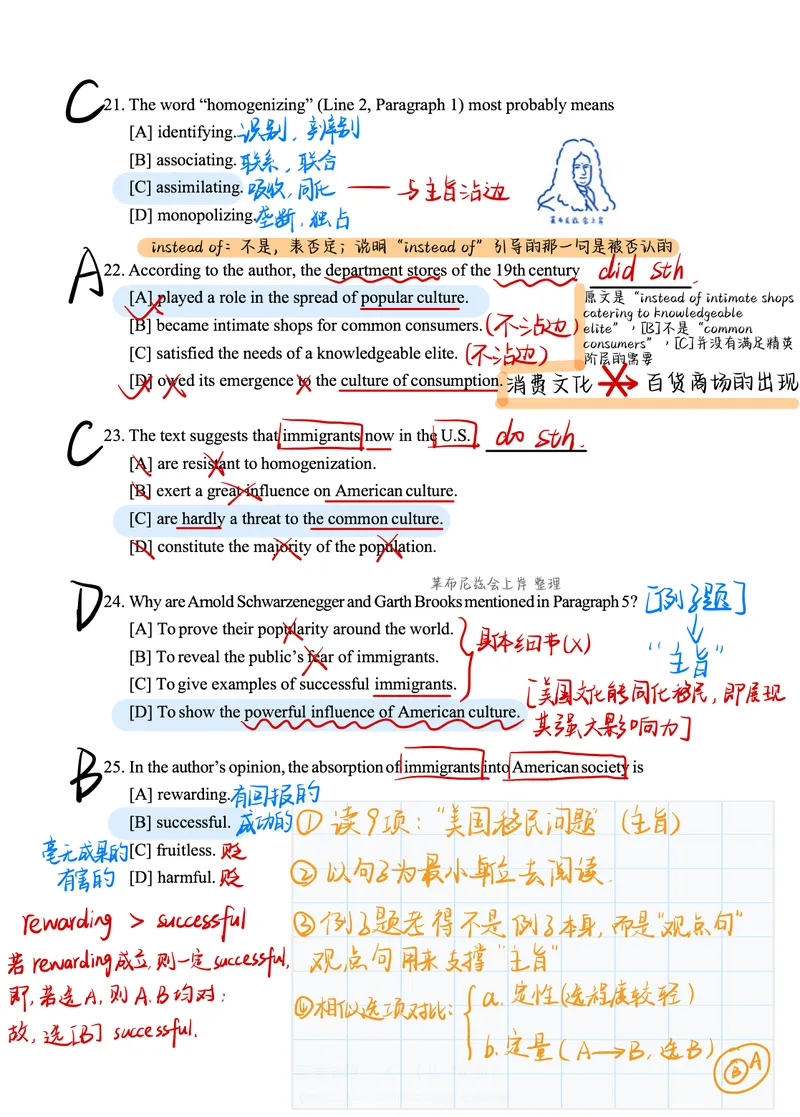 C 21. The word “homogenizing” (Line 2, Paragraph 1) most probably means
[A] identifying. 识别，辨别
[B] associating. 联系，联合
[C] assimilating. 吸收，同化 —— 与主旨沾边
[D] monopolizing. 垄断，独占
莱布尼兹会上岸
instead of：不是，表否定；说明“instead of”引导的那一句是被否认的
A 22. According to the author, the department stores of the 19th century did sth.
[A] played a role in the spread of popular culture.
[B] became intimate shops for common consumers. (不沾边)
[C] satisfied the needs of a knowledgeable elite. (不沾边)
[D] owed its emergence to the culture of consumption.
原文是“instead of intimate shops
catering to knowledgeable
elite”，[B]不是“common
consumers”，[C]并没有满足精英
阶层的需要
消费文化 → 百货商场的出现
C 23. The text suggests that immigrants now in the U.S. do sth.
[A] are resistant to homogenization.
[B] exert a great influence on American culture.
[C] are hardly a threat to the common culture.
[D] constitute the majority of the population.
莱布尼兹会上岸 整理
D 24. Why are Arnold Schwarzenegger and Garth Brooks mentioned in Paragraph 5? [例子题]
[A] To prove their popularity around the world.
[B] To reveal the public’s fear of immigrants.
[C] To give examples of successful immigrants.
[D] To show the powerful influence of American culture.
具体细节(X)
“主旨”
[美国文化能同化移民，即展现
其强大影响力]
B 25. In the author’s opinion, the absorption of immigrants into American society is
[A] rewarding. 有回报的
[B] successful. 成功的
毫无成果的 [C] fruitless. 贬
有害的 [D] harmful. 贬
rewarding > successful
若rewarding成立，则一定successful，
即，若选A，则A.B均对；
故，选[B] successful.
① 读9项：“美国移民问题”（主旨）
② 以句子为最小单位去阅读.
③ 例子题考得不是例子本身，而是“观点句”
观点句用来支撑“主旨”
④ 相似选项对比：
a. 定性（选程度较轻）
b. 定量（A→B，选B）
B A